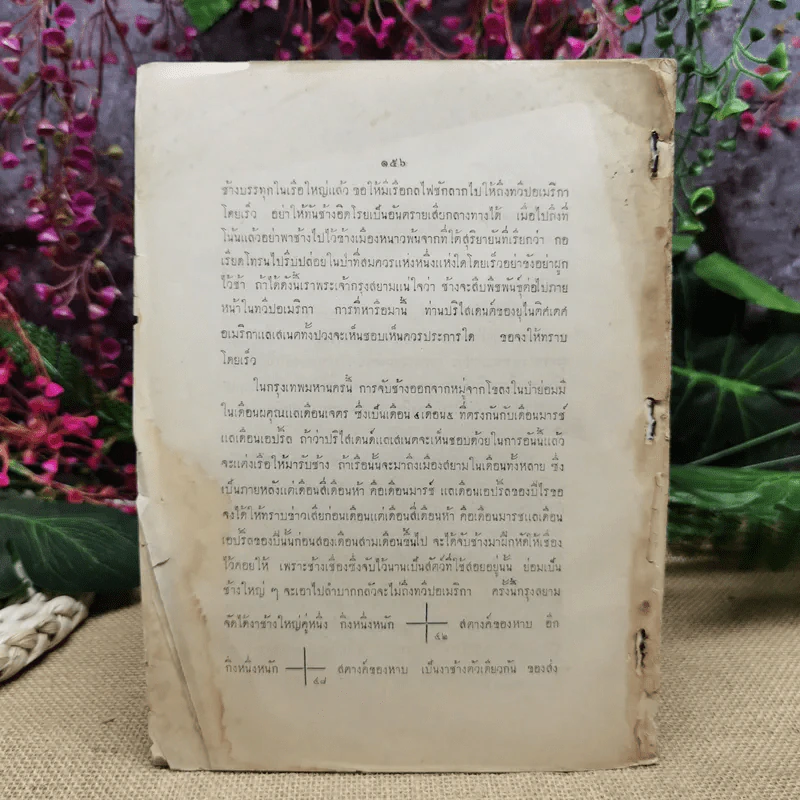 ๑๕๖
ช้างบรรทุกในเรือใหญ่แล้ว ขอให้มีเรือกลไฟชักลากไปให้ถึงทวีปอเมริกา
โดยเร็ว อย่าให้ทันช้างอิดโรยเป็นอันตรายเสียกลางทางได้ เมื่อไปถึงที่
โน้นแล้วอย่าพาช้างไปไว้ข้างเมืองหนาวพ้นจากที่ใต้สุริยายันที่เรียกว่า กอ
เรียดโทรนไปรีบปล่อยในป่าที่สมควรแห่งหนึ่งแห่งใดโดยเร็วอย่าขังอย่าผูก
ไว้ช้า ถ้าได้ดังนี้เราพระเจ้ากรุงสยามแน่ใจว่า ช้างจะสืบพืชพันธุ์ต่อไปภาย
หน้าในทวีปอเมริกา การที่หารือมานี้ ท่านปริไสเดนต์ของยุไนติศเตศ
อเมริกาแลสเนตทั้งปวงจะเห็นชอบเห็นควรประการใด ขอจงให้ทราบ
โดยเร็ว
ในกรุงเทพมหานครนี้ การจับช้างออกจากหมู่จากโขลงในป่าย่อมมี
ในเดือนผคุณแลเดือนเจตร ซึ่งเป็นเดือน ๔ เดือน ๕ ที่ตรงกันกับเดือนมารช์
แลเดือนเอปริล ถ้าว่าปริไสเดนต์แลเสเนตจะเห็นชอบด้วยในการอันนี้แล้ว
จะแต่งเรือให้มารับช้าง ถ้าเรือนั้นจะมาถึงเมืองสยามในเดือนทั้งหลาย ซึ่ง
เป็นภายหลังแต่เดือนสี่เดือนห้า คือเดือนมารช์ แลเดือนเอปริลของปีไรขอ
จงได้ให้ทราบข่าวเสียก่อนเดือนแต่เดือนสี่เดือนห้า คือเดือนมารชแลเดือน
เอปริลของปีนั้นก่อนสองเดือนสามเดือนขึ้นไป จะได้จับช้างมาฝึกหัดให้เชื่อง
ไว้คอยให้ เพราะช้างเชื่องซึ่งจับไว้นานเป็นสัตว์ที่ใช้สอยอยู่นั้น ย่อมเป็น
ช้างใหญ่ ๆ จะเอาไปลำบากกลัวจะไม่ถึงทวีปอเมริกา ครั้งนี้กรุงสยาม
จัดได้งาช้างใหญ่คู่หนึ่ง กิ่งหนึ่งหนัก ๕๒ สตางค์ของหาบ อีก
กิ่งหนึ่งหนัก ๔๘ สตางค์ของหาบ เป็นงาช้างตัวเดียวกัน ของส่ง